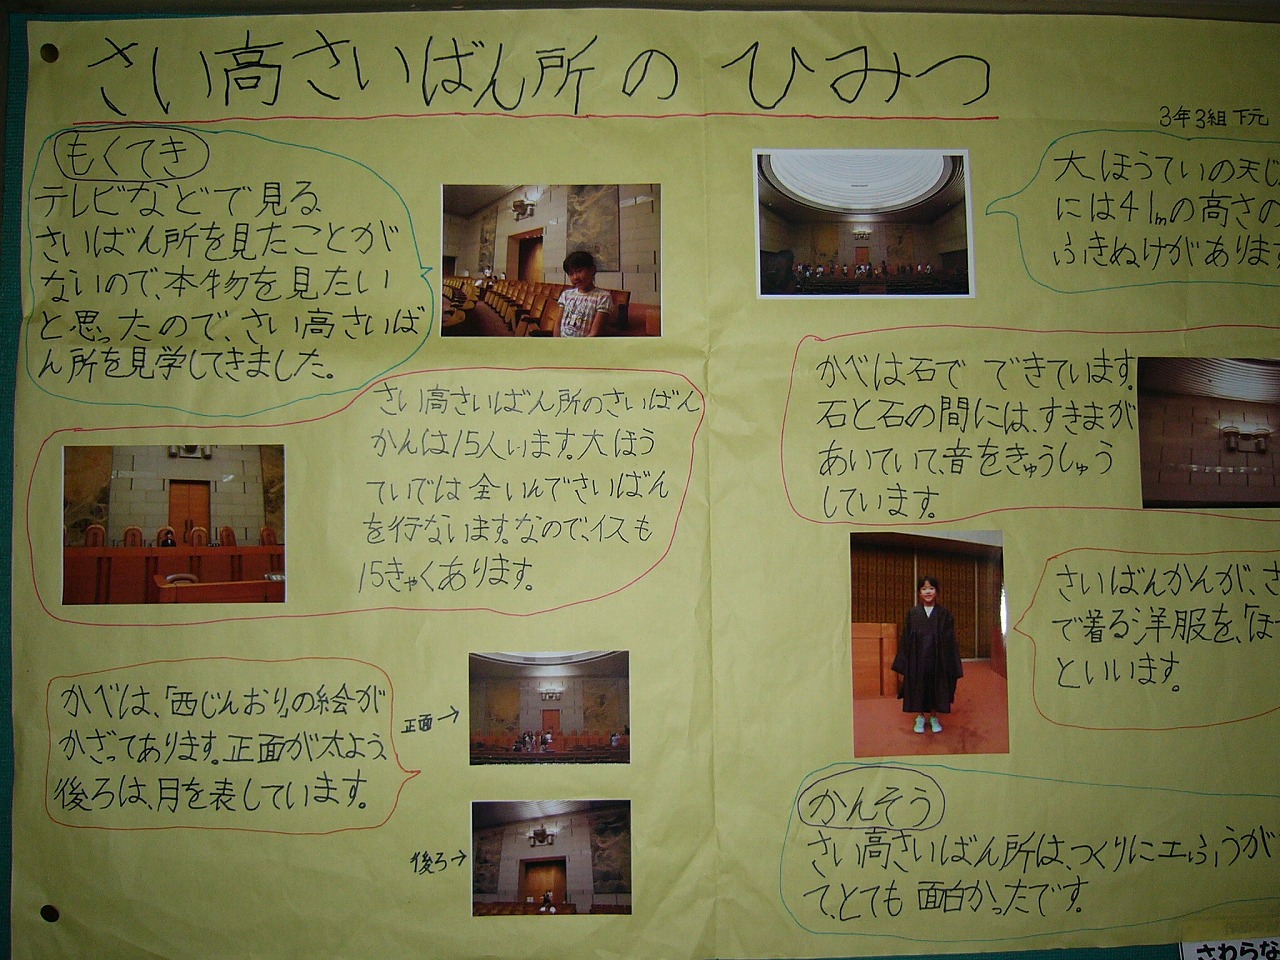 さい高さいばん所のひみつ
3年3組 下元
もくてき
テレビなどで見る
さいばん所を見たことが
ないので、本物を見たい
と思ったので、さい高さいば
ん所を見学してきました。
さい高さいばん所のさいばん
かんは15人います。大ほう
ていでは全いんでさいばん
を行ないます。なので、イスも
15きゃくあります。
かべは、「西じんおり」の絵が
かざってあります。正面が太よう
後ろは、月を表しています。
正面→
後ろ→
大ほうていの天じ
には41mの高さの
ふきぬけがありま
かべは石で できています。
石と石の間には、すきまが
あいていて、音をきゅうしゅう
しています。
さいばんかんが、さ
で着る洋服を、「ほ
といいます。
かんそう
さい高さいばん所は、つくりにエふうが
て、とても面白かったです。
さわらな